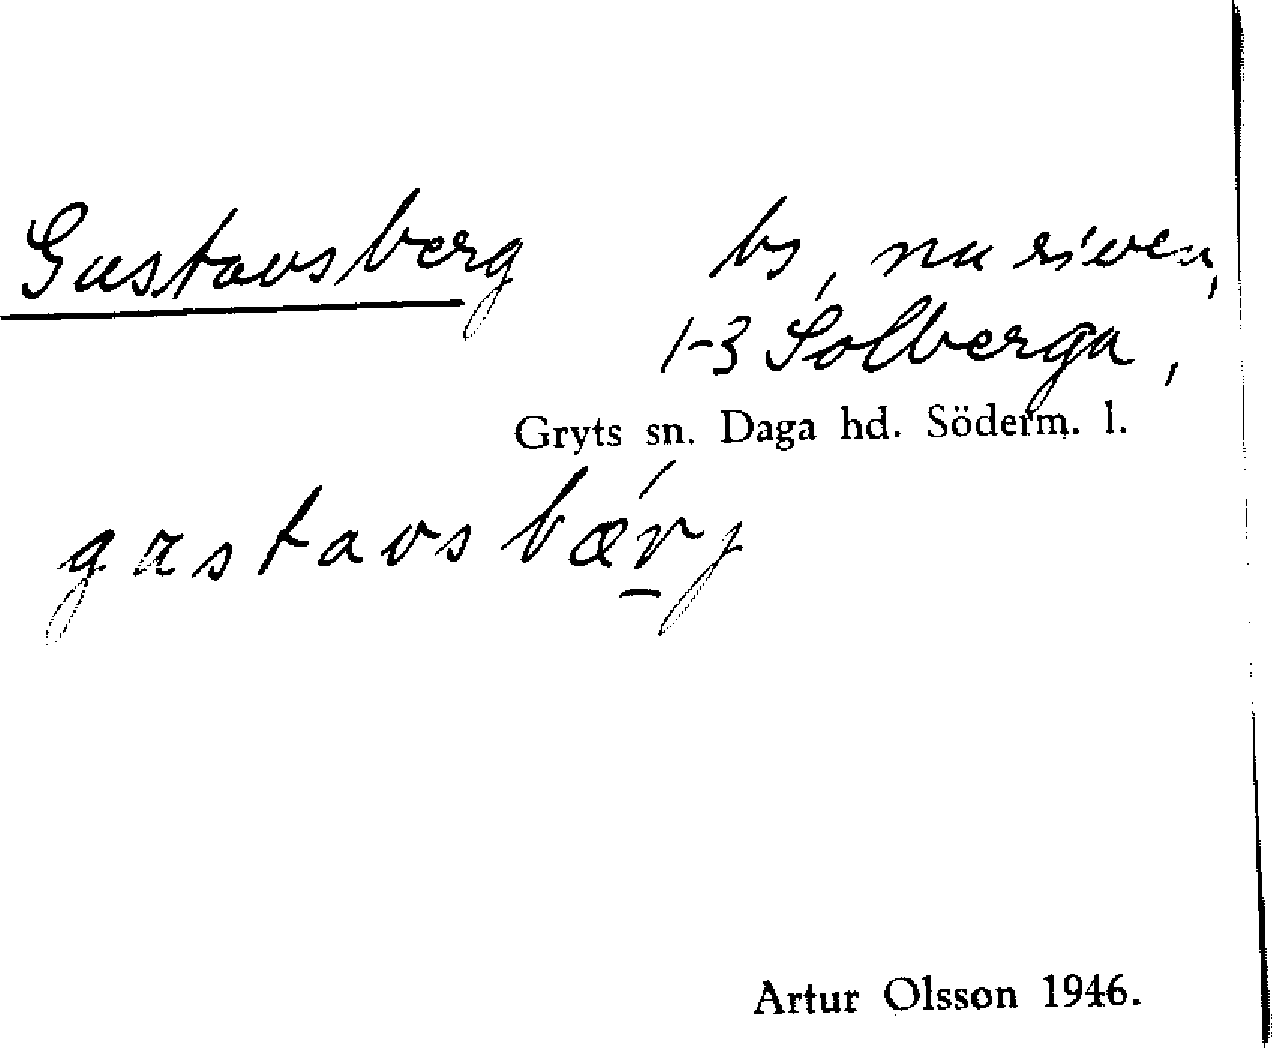 Gustavsberg bs, nu riven,
1-3 Solberga,
Gryts sn. Daga hd. Söderm. l.
gustavsbærj
Artur Olsson 1946.